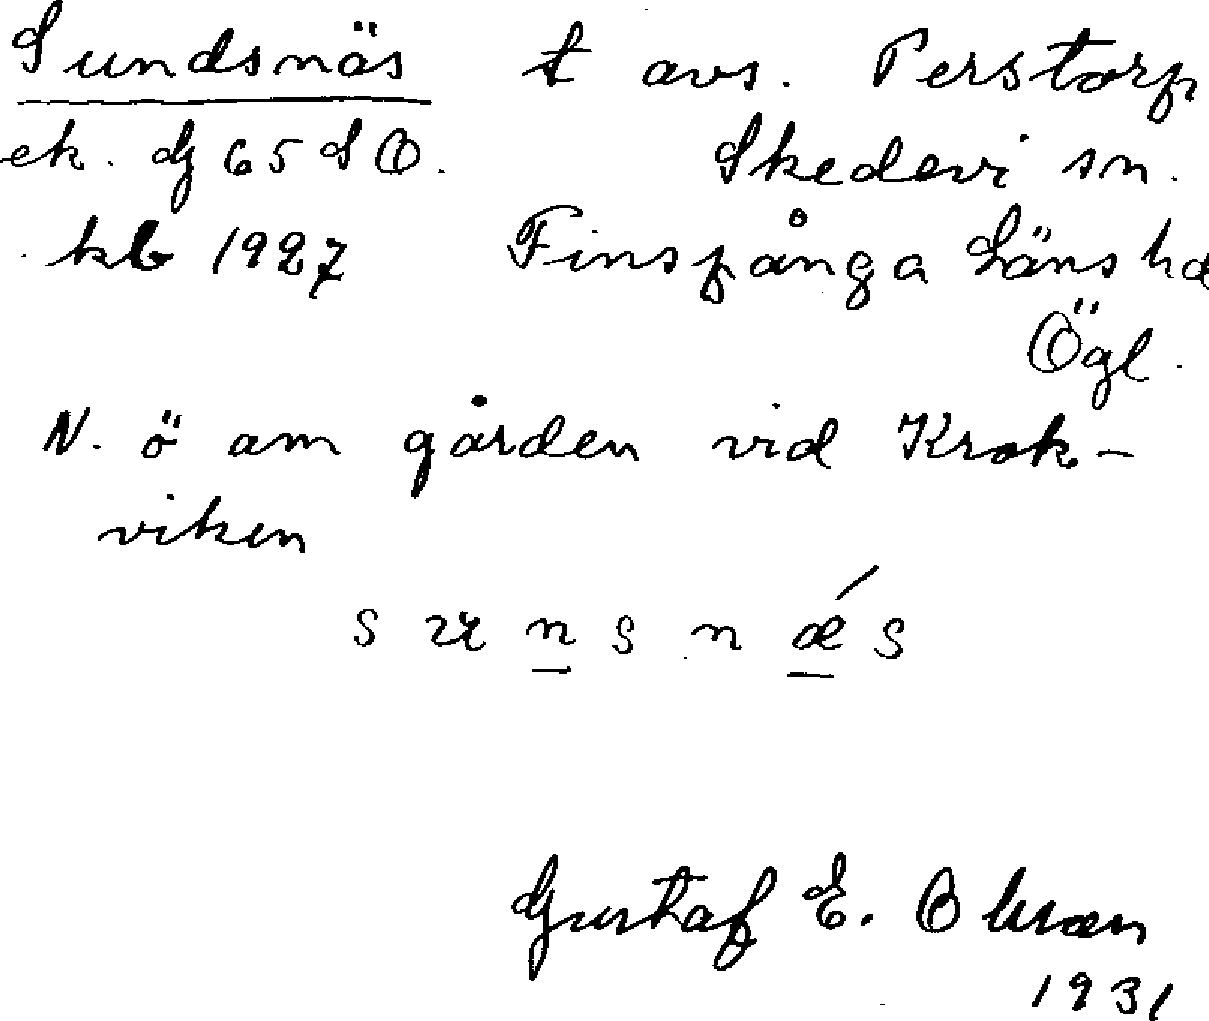 Sundsnäs t avs. Perstorp
ek. dj 65 SO. Skedevi sn.
kb 1927 Finspånga Läns hd
Ögl.
N. ö om gården vid Krok-
viken
s u n s n ǽ s
Gustaf E. Olsson
1931